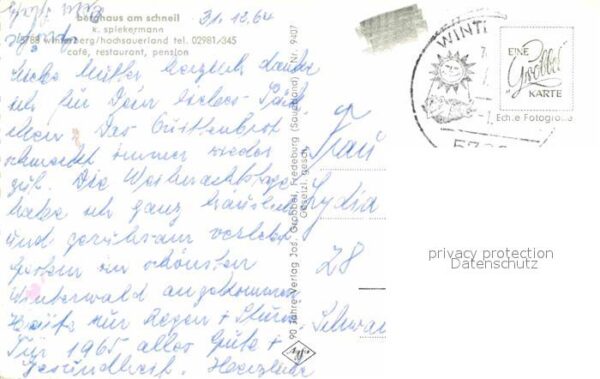 berghaus am schneil
k. spiekermann
5788 winterberg/hochsauerland tel. 02981/345
café, restaurant, pension
31.12.64
Liebe Mutter herzlich danke
ich für Dein liebes
chen. Das Christbrot
schmeckt immer wieder
gut. Die Weihnachtstage
habe ich ganz häuslich
und geruhsam verlebt
Gestern im schönsten
Winterwald angekommen
Heute nur Regen + Sturm
Für 1965 alles Gute +
Gesundheit. Herzliche
90 Jahre Verlag Jos. Grobbel, Fredeburg (Sauerland) Nr. 9407
Gesetzl. gesch.
Agfa
WINT
EINE
Grobbel
KARTE
Echte Fotogra
Frau
Lydia
28
Schwa
privacy protection
Datenschutz